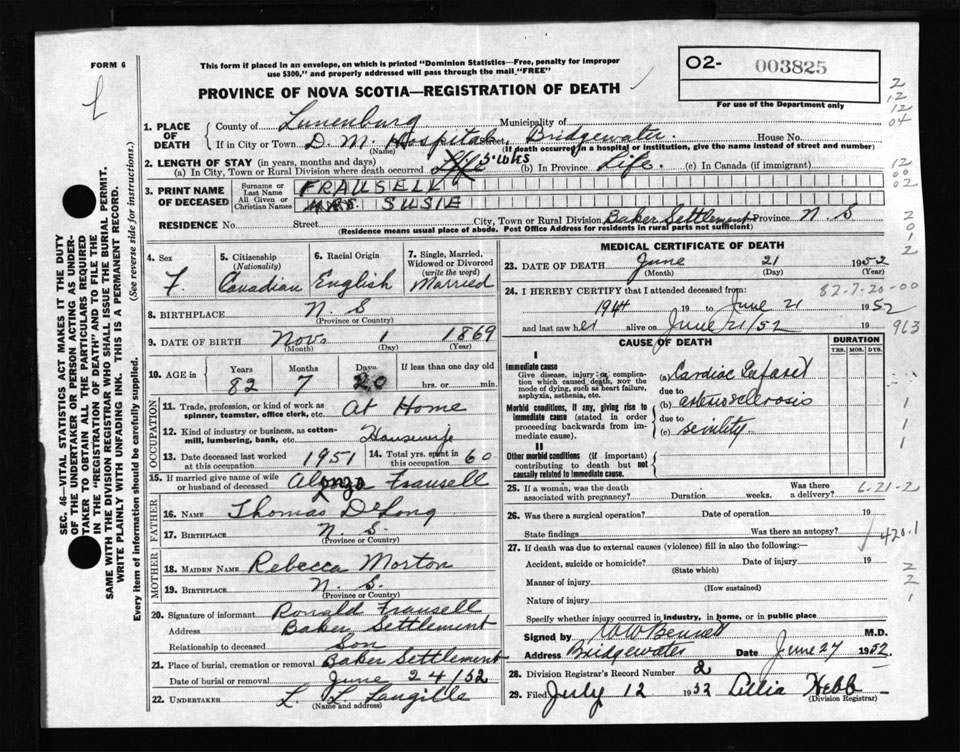 FORM 6
This form if placed in an envelope, on which is printed "Dominion Statistics—Free, penalty for improper
use $300," and properly addressed will pass through the mail "FREE"
O2- 003825
For use of the Department only
PROVINCE OF NOVA SCOTIA—REGISTRATION OF DEATH
2
12
12
04
12
00
02
2
0
1
2
SEC. 46—VITAL STATISTICS ACT MAKES IT THE DUTY
OF THE UNDERTAKER OR PERSON ACTING AS UNDER-
TAKER TO OBTAIN ALL THE PARTICULARS REQUIRED
IN THE "REGISTRATION OF DEATH" AND TO FILE THE
SAME WITH THE DIVISION REGISTRAR WHO SHALL ISSUE THE BURIAL PERMIT.
WRITE PLAINLY WITH UNFADING INK. THIS IS A PERMANENT RECORD.
(See reverse side for instructions.)
Every item of information should be carefully supplied.
1. PLACE OF DEATH
County of Lunenburg Municipality of
If in City or Town D. M. Hospital Street, Bridgewater. House No.
(Name) (If death occurred in a hospital or institution, give the name instead of street and number)
2. LENGTH OF STAY (in years, months and days)
(a) In City, Town or Rural Division where death occurred Life 5 wks (b) In Province Life. (c) In Canada (if immigrant)
3. PRINT NAME OF DECEASED
Surname or Last Name FRAUSELL
All Given or Christian Names MRS SUSIE
RESIDENCE No. Street City, Town or Rural Division Baker Settlement Province N. S
(Residence means usual place of abode. Post Office Address for residents in rural parts not sufficient)
4. Sex F.
5. Citizenship (Nationality) Canadian
6. Racial Origin English
7. Single, Married, Widowed or Divorced (write the word) Married
8. BIRTHPLACE N. S
(Province or Country)
9. DATE OF BIRTH Nov. 1 1869
(Month) (Day) (Year)
10. AGE in Years Months Days If less than one day old
82 7 20 hrs. or min.
OCCUPATION
11. Trade, profession, or kind of work as spinner, teamster, office clerk, etc. At Home
12. Kind of industry or business, as cotton-mill, lumbering, bank, etc. Housewife
13. Date deceased last worked at this occupation 1951 14. Total yrs. spent in this occupation 60
15. If married give name of wife or husband of deceased Alonzo Frausell
FATHER
16. Name Thomas DeLong
17. BIRTHPLACE N. S.
(Province or Country)
MOTHER
18. MAIDEN NAME Rebecca Morton
19. BIRTHPLACE N. S.
(Province or Country)
20. Signature of informant Ronald Frausell
Address Baker Settlement
Relationship to deceased Son
21. Place of burial, cremation or removal Baker Settlement
Date of burial or removal June 24/52
22. UNDERTAKER L. L. Langille
(Name and address)
MEDICAL CERTIFICATE OF DEATH
23. DATE OF DEATH June 21 1952
(Month) (Day) (Year)
24. I HEREBY CERTIFY that I attended deceased from: 82-7-20-00
1944 19 to June 21 1952
and last saw her alive on June 21/52 19 963
CAUSE OF DEATH DURATION
YRS. MOS. DYS.
I
Immediate cause
Give disease, injury or complication which caused death, not the mode of dying, such as heart failure, asphyxia, asthenia, etc.
(a) Cardiac Infarct
due to
Morbid conditions, if any, giving rise to immediate cause (stated in order proceeding backwards from immediate cause).
(b) arteriosclerosis
due to
(c) senility
1
1
1
II
Other morbid conditions (if important) contributing to death but not causally related to immediate cause.
25. If a woman, was the death associated with pregnancy? Duration weeks. Was there a delivery? 6-21-2
26. Was there a surgical operation? Date of operation 19
State findings Was there an autopsy? 420.1
27. If death was due to external causes (violence) fill in also the following:—
Accident, suicide or homicide? Date of injury 19
(State which)
Manner of injury
(How sustained)
Nature of injury
2
2
1
Specify whether injury occurred in industry, in home, or in public place
Signed by W W Bennett M.D.
Address Bridgewater Date June 27 1952.
28. Division Registrar's Record Number 2
29. Filed July 12 1952 Lelia Hebb
(Division Registrar)